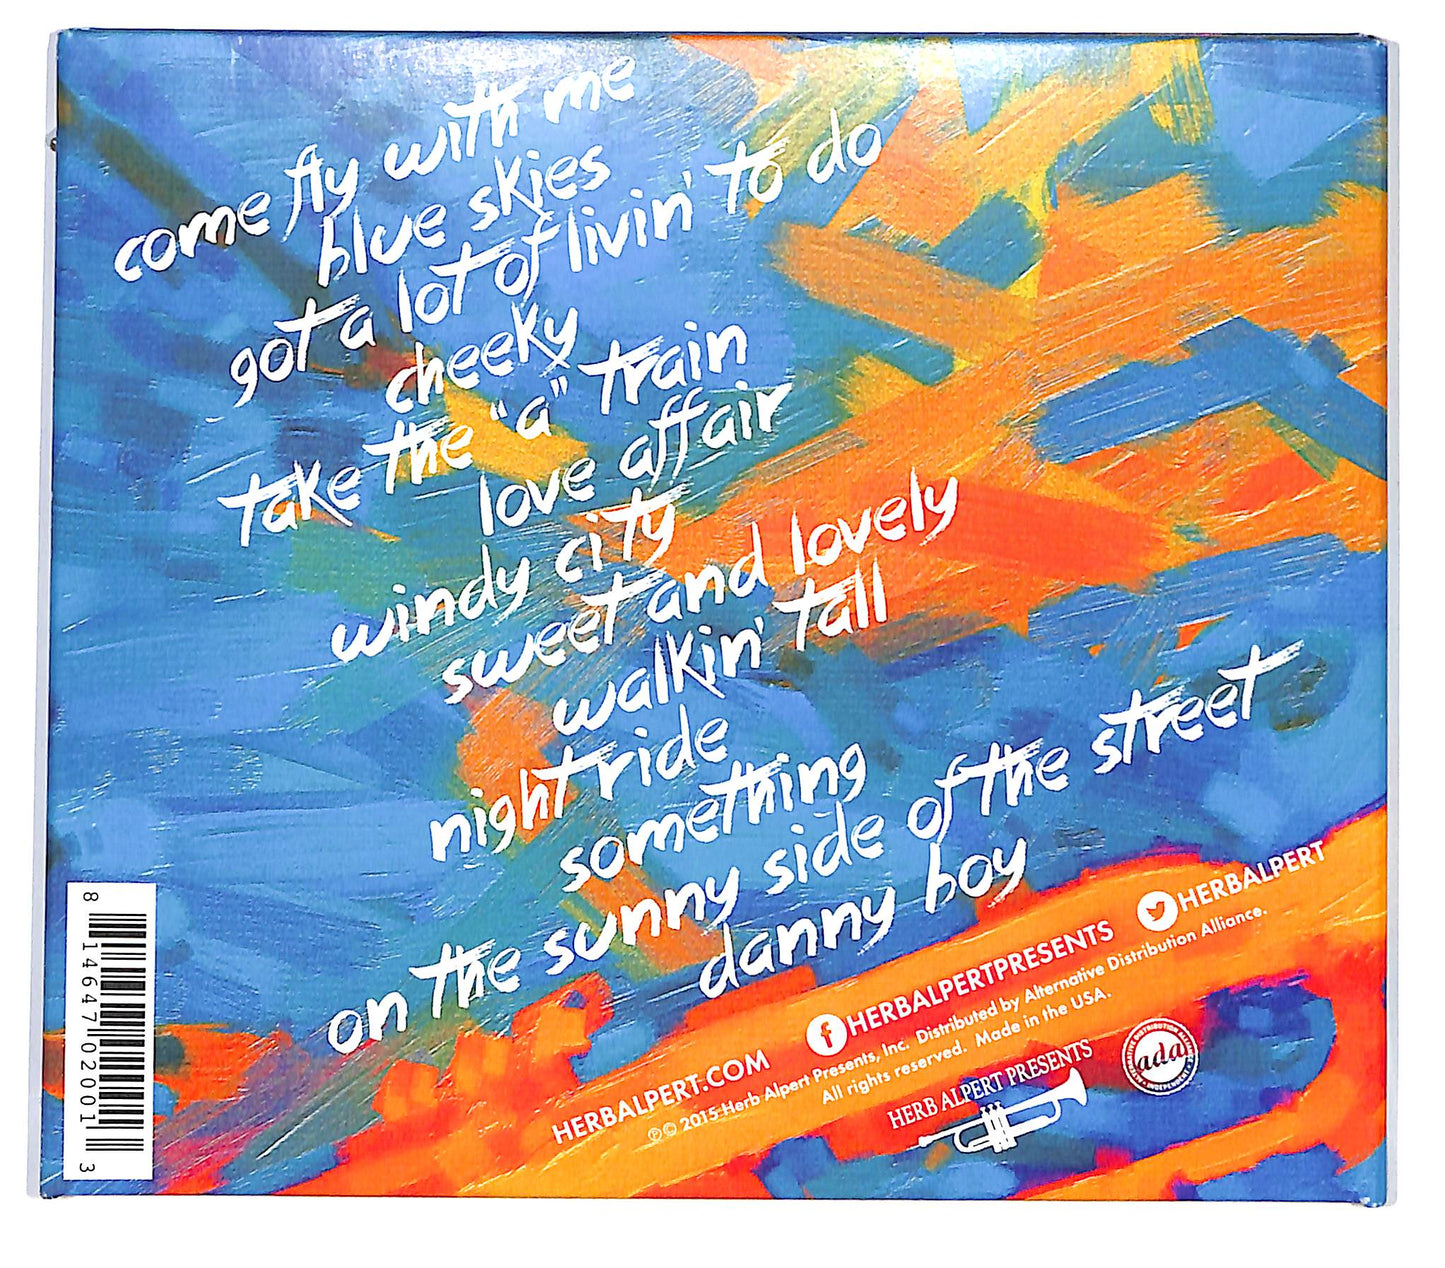 come fly with me
blue skies
got a lot of livin' to do
cheeky
take the "a" train
love affair
windy city
sweet and lovely
walkin' tall
night ride
something
on the sunny side of the street
danny boy
HERBALPERT.COM
f HERBALPERTPRESENTS
HERBALPERT
℗© 2015 Herb Alpert Presents, Inc. Distributed by Alternative Distribution Alliance.
All rights reserved. Made in the USA.
HERB ALPERT PRESENTS
ada
ALTERNATIVE DISTRIBUTION ALLIANCE
INDEPENDENT
8 14647 02001 3